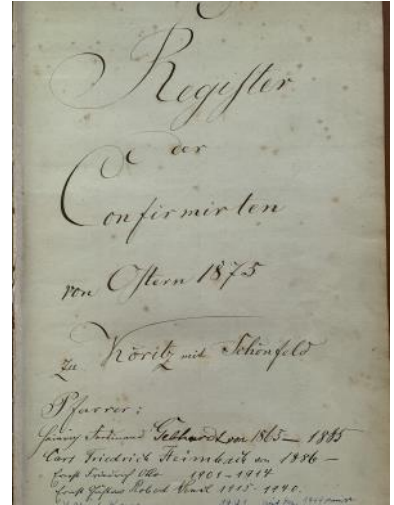 Register
der
Confirmirten
von Ostern 1875
zu Köritz mit Schönfeld
Pfarrer:
Ferdinand Gebhardt von 1865 — 1885
Carl Friedrich Heimbach von 1886 —
Ernst Friedrich Otto 1901 - 1914
Ernst Gustav Robert 1915 - 1940.